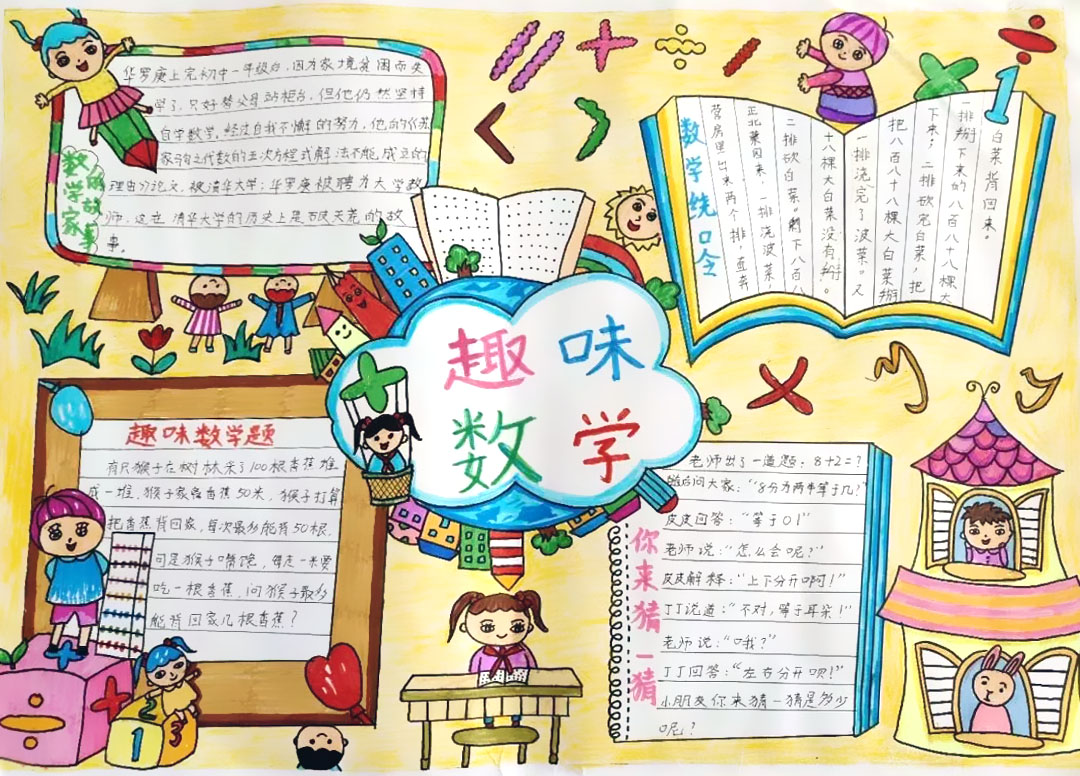 华罗庚上完初中一年级后，因为家境贫困而失
学了，只好替父母站柜台，但他仍然坚持
自学数学，经过自我不懈的努力，他的《苏
家驹之代数的五次方程式解法不能成立的
理由》论文，被清华大学：华罗庚被聘为大学教
师，这在清华大学的历史上是破天荒的故
事。
数学家
的故事
数学绕口令
1
白菜背回来。
一排掰下来的八百八十八棵大
下来；二排砍完白菜，把
把八百八十八棵大白菜掰
一排浇完了菠菜。又
十八棵大白菜没有掰。
二排砍白菜。剩下八百八
正北菜园来，一排浇菠菜，
营房里出来两个排，直奔
趣味
数学
趣味数学题
有只猴子在树林采了100根香蕉堆
成一堆，猴子家离香蕉50米，猴子打算
把香蕉背回家，每次最多能背50根，
可是猴子嘴馋，每走一米要
吃一根香蕉，问猴子最多
能背回家几根香蕉？
2
1
3
你来猜一猜
老师出了一道题：8+2=？
然后问大家：“8分为两半等于几？”
皮皮回答：“等于0！”
老师说：“怎么会呢？”
皮皮解释：“上下分开啊！”
丁丁说道：“不对，等于耳朵！”
老师说：“哦？”
丁丁回答：“左右分开呗！”
小朋友你来猜一猜是多少
呢？